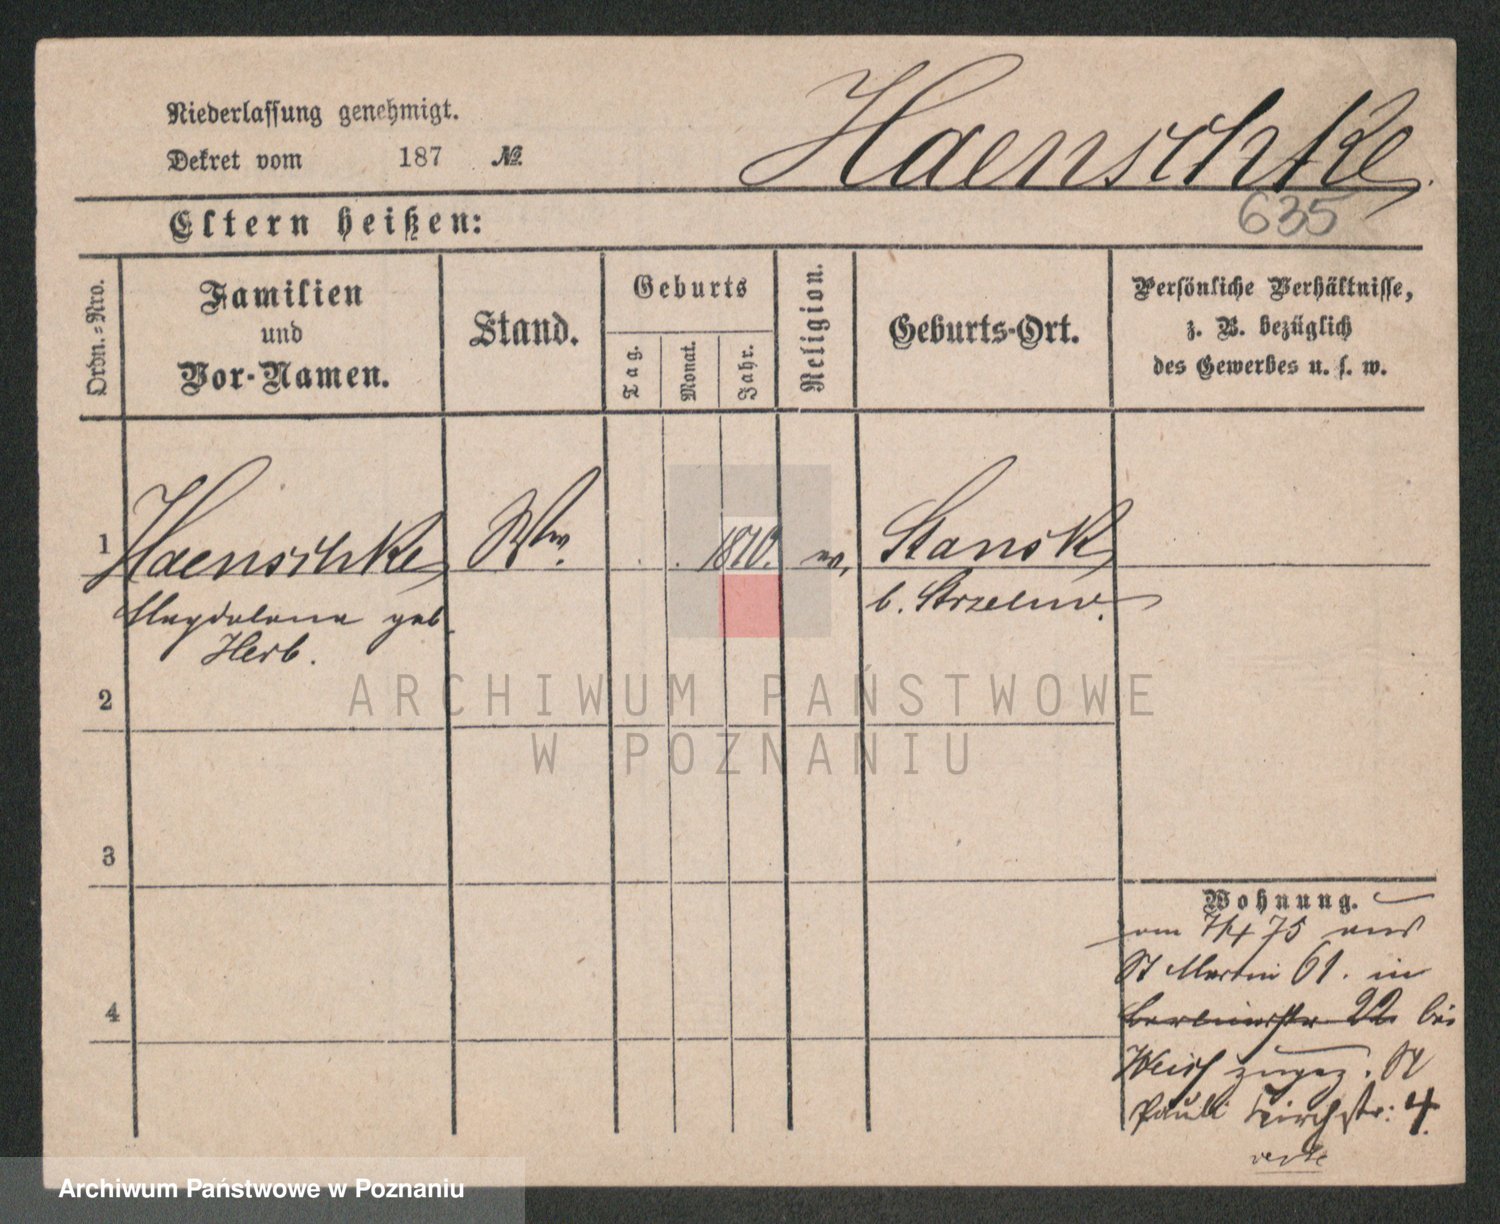 Niederlassung genehmigt.
Dekret vom 187 №
Haenschke.
635
Eltern heißen:
Ordn.=Nro.
Familien
und
Vor-Namen.
Stand.
Geburts
Tag.
Monat.
Jahr.
Religion.
Geburts-Ort.
Persönliche Verhältnisse,
z. B. bezüglich
des Gewerbes u. s. w.
1 Haenschke Ww. 1810.
Magdalena geb. b. Strzelno.
Herb.
2
3
4
Wohnung.
75 aus
St Martin 61. in
Berlinerstr 22 bei
zugez. St
Pauli Kirchstr: 4.
ARCHIWUM PAŃSTWOWE
W POZNANIU
Archiwum Państwowe w Poznaniu